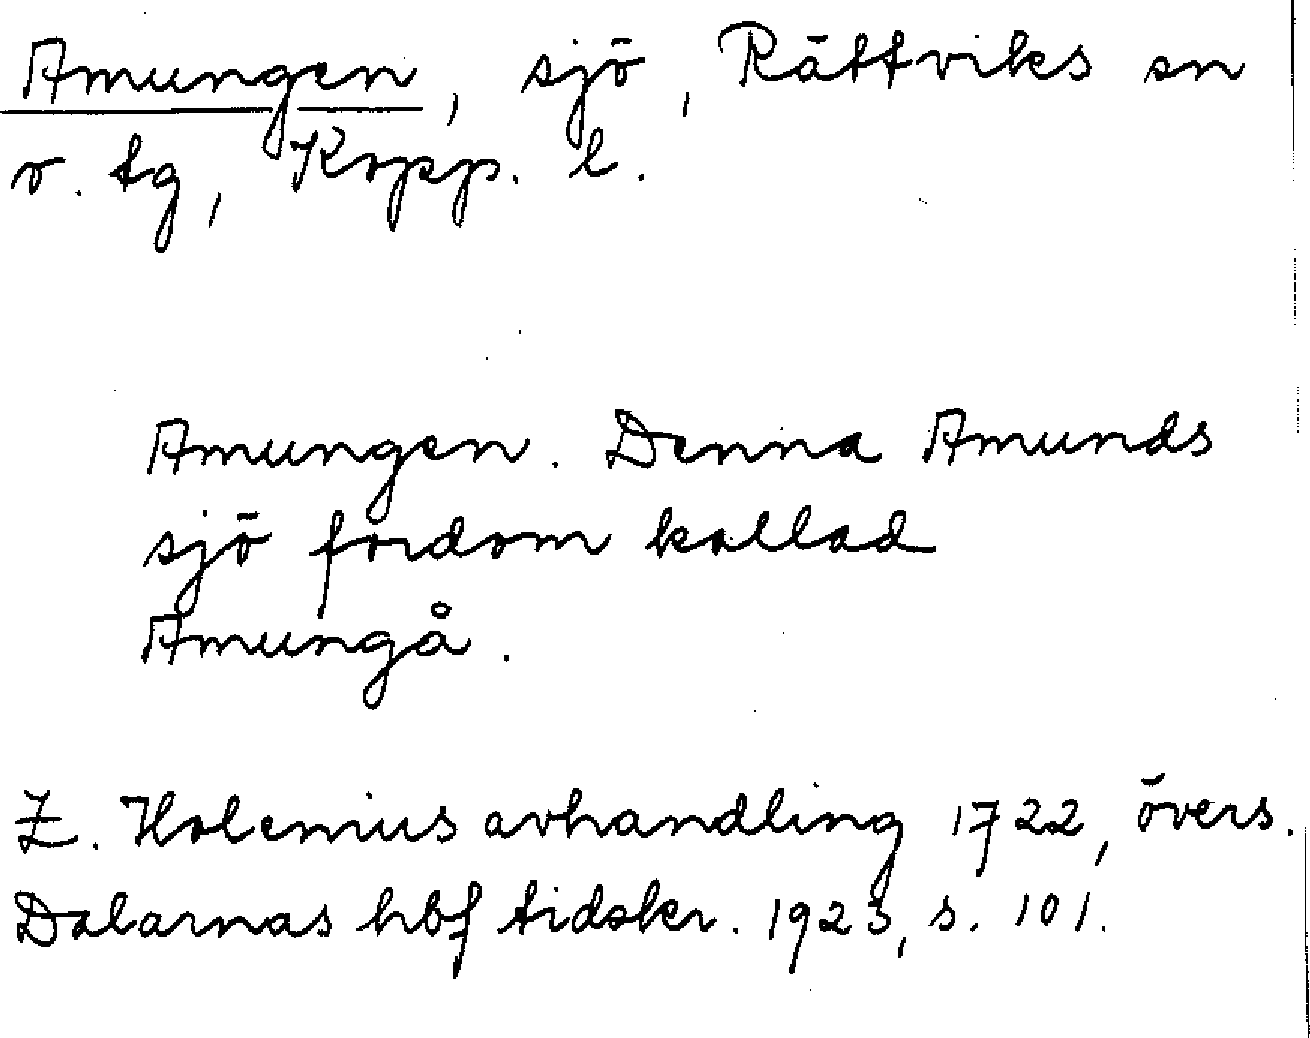 Amungen, sjö, Rättviks sn
o. tg, Kopp. l.
Amungen. Denna Amunds
sjö fordom kallad
Amungå.
Z. Holenius avhandling 1722, övers.
Dalarnas hbf tidskr. 1923, s. 101.